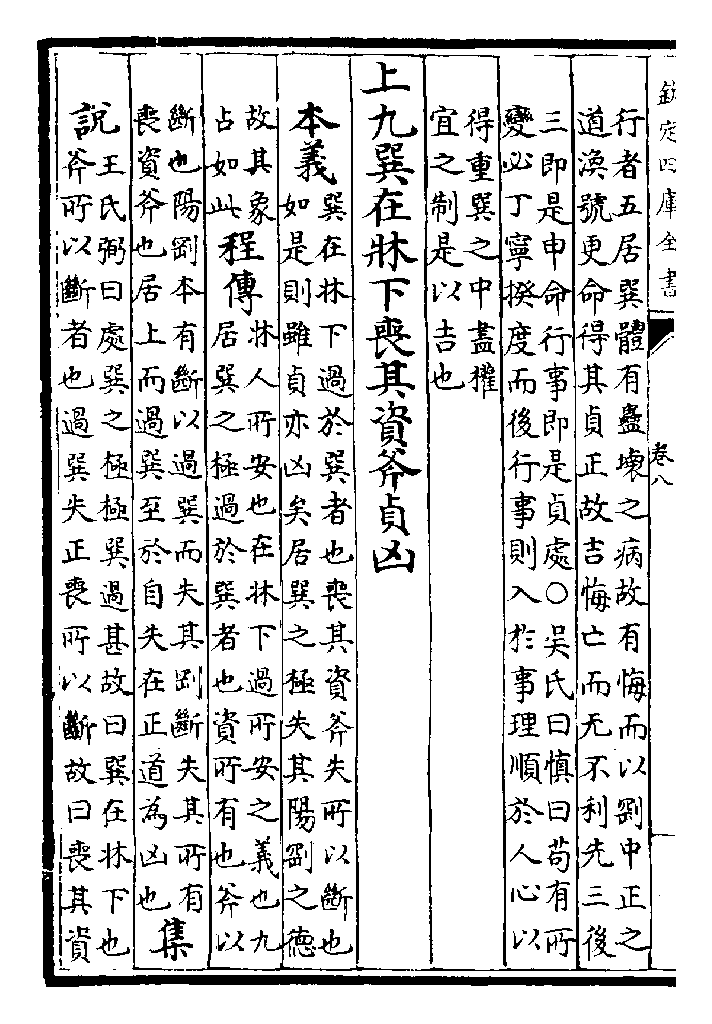 欽定四庫全書
卷八
行者五居巽體有蠱壞之病故有悔而以剛中正之
道渙號更命得其貞正故吉悔亡而无不利先三後
三即是申命行事即是貞處○吳氏曰慎曰苟有所
變必丁寧揆度而後行事則入於事理順於人心以
得重巽之中盡權
宜之制是以吉也
上九巽在牀下喪其資斧貞凶
本義
巽在牀下過於巽者也喪其資斧失所以斷也
如是則雖貞亦凶矣居巽之極失其陽剛之德
故其象
占如此
程傳
牀人所安也在牀下過所安之義也九
居巽之極過於巽者也資所有也斧以
斷也陽剛本有斷以過巽而失其剛斷失其所有
喪資斧也居上而過巽至於自失在正道為凶也
集
說
王氏弼曰處巽之極極巽過甚故曰巽在牀下也
斧所以斷者也過巽失正喪所以斷故曰喪其資